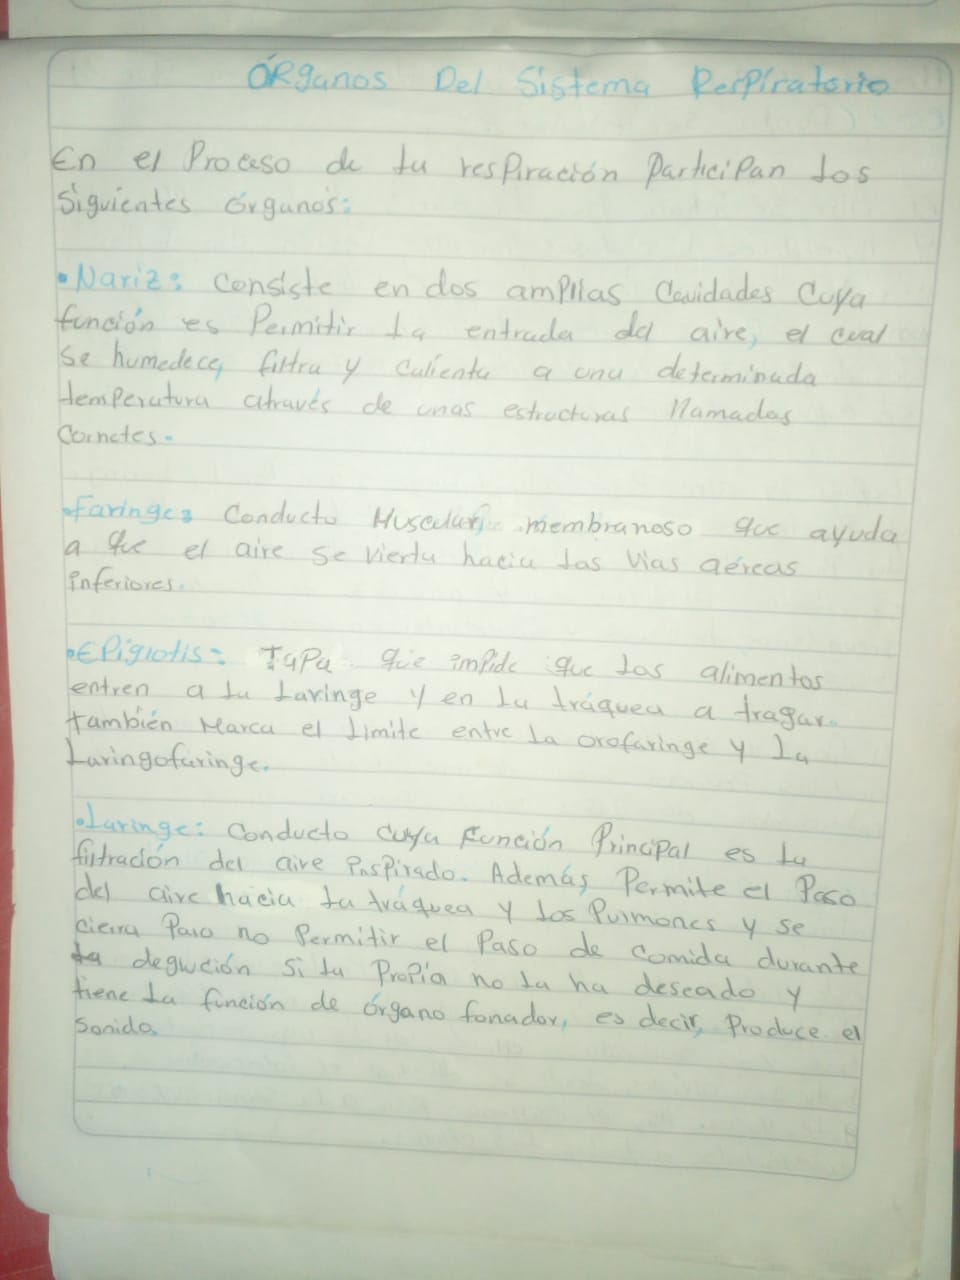 ÓRganos Del Sistema Respiratorio
En el Proceso de la respiración Participan los
Siguientes órganos:
• Nariz: Consiste en dos amplias Cavidades Cuya
función es Permitir la entrada del aire, el cual
Se humedece, filtra y Calienta a una determinada
temperatura através de unas estructuras llamadas
Cornetes.
• Faringe: Conducto Muscular, membranoso que ayuda
a que el aire se vierta hacia las Vias aéreas
inferiores.
• EPiglotis: TaPa que impide que los alimentos
entren a la Laringe y en la tráquea a tragar.
también Marca el límite entre la orofaringe y la
Laringofaringe.
• Laringe: Conducto Cuya Función Principal es la
filtración del aire inspirado. Además, Permite el Paso
del aire hacia la tráquea y los Pulmones y se
cierra Para no Permitir el Paso de Comida durante
la deglución Si la Propia no la ha deseado y
tiene la función de órgano fonador, es decir, Produce el
Sonido.